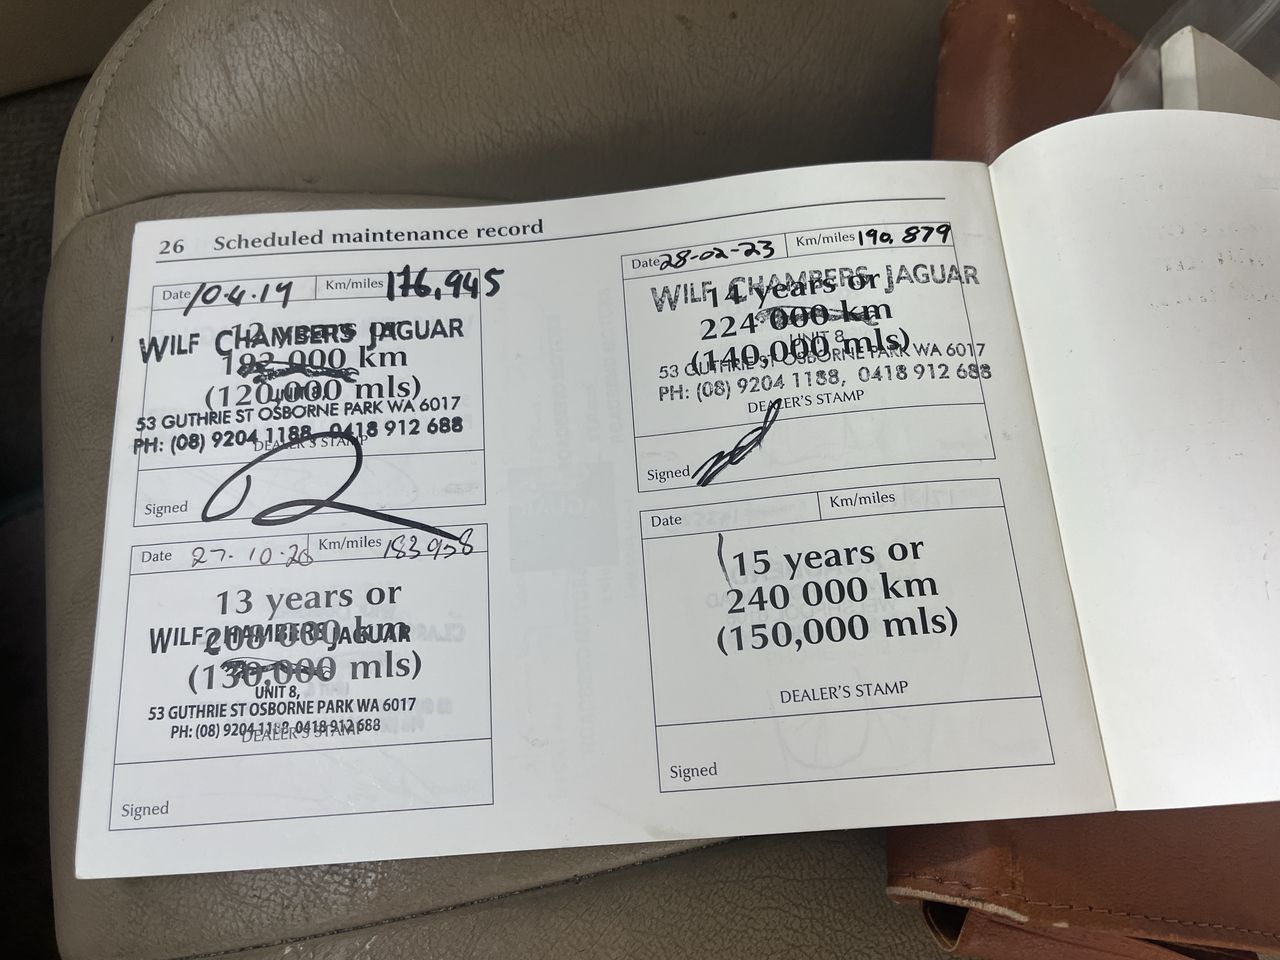 26 Scheduled maintenance record
Date 10.4.19 Km/miles 176,945
12 years or
WILF CHAMBERS JAGUAR
192 000 km
(120,000 mls)
UNIT 8,
53 GUTHRIE ST OSBORNE PARK WA 6017
PH: (08) 9204 1188, 0418 912 688
DEALER'S STAMP
Signed
Date 27-10-20 Km/miles 183958
13 years or
WILF CHAMBERS JAGUAR
208 000 km
(130,000 mls)
UNIT 8,
53 GUTHRIE ST OSBORNE PARK WA 6017
PH: (08) 9204 1188, 0418 912 688
DEALER'S STAMP
Signed
Date 28-02-23 Km/miles 190,879
WILF CHAMBERS JAGUAR
14 years or
224 000 km
UNIT 8,
(140,000 mls)
53 GUTHRIE ST OSBORNE PARK WA 6017
PH: (08) 9204 1188, 0418 912 688
DEALER'S STAMP
Signed
Date Km/miles
15 years or
240 000 km
(150,000 mls)
DEALER'S STAMP
Signed